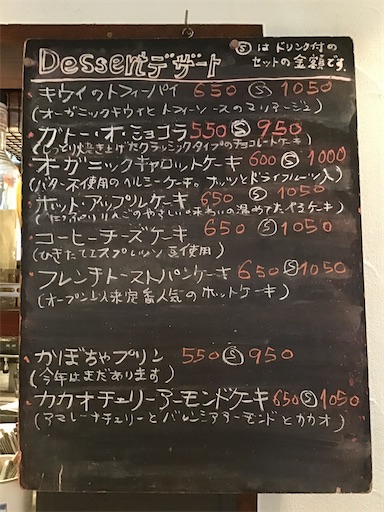 Dessert デザート
Ⓢ は ドリンク付の
セットの金額です。
キウイのトフィーパイ 650 Ⓢ 1050
(オーガニックキウイとトフィーソースのマリアージュ)
ガトー・オ・ショコラ 550 Ⓢ 950
(しっとり焼き上げたクラシックタイプのチョコレートケーキ)
オーガニックキャロットケーキ 600 Ⓢ 1000
(バター不使用のヘルシーケーキ。ナッツとドライフルーツ入)
ホット・アップルケーキ 650 Ⓢ 1050
(たっぷりりんごのやさしい味わいの温めてたべるケーキ)
コーヒーチーズケーキ 650 Ⓢ 1050
(ひきたてエスプレッソ豆使用)
フレンチトーストパンケーキ 650 Ⓢ 1050
(オープン以来定番人気のホットケーキ)
かぼちゃプリン 550 Ⓢ 950
(今年はまだあります)
カカオチェリーアーモンドケーキ 650 Ⓢ 1050
(アマレーナチェリーとバレンシアアーモンドとカカオ)